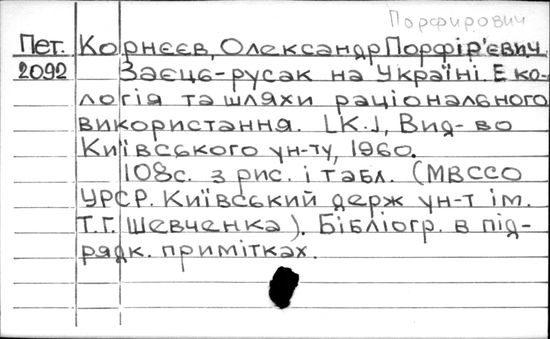 Порфирович
Пет. Корнєєв, Олександр Порфір'евич.
2092 Заєць-русак на Україні. Еко-
логія та шляхи раціонального
використання. [К.], Вид-во
Київського ун-ту, 1960.
108с. з рис. і табл. (МВССО
УРСР. Київський держ ун-т ім.
Т.Г. Шевченка). Бібліогр. в під-
рядк. примітках.